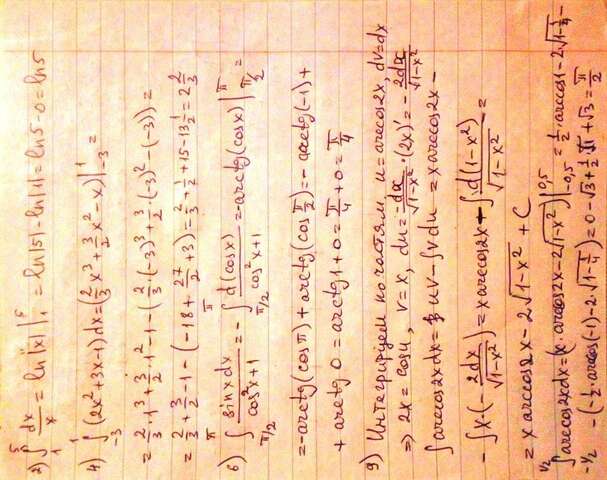 2) ∫₁⁵ dx/x = ln|x| |₁⁵ = ln|5| - ln|1| = ln5 - 0 = ln5
4) ∫₋₃¹ (2x²+3x-1)dx = (2/3 x³ + 3/2 x² - x) |₋₃¹ =
= 2/3 · 1³ + 3/2 · 1² - 1 - (2/3 (-3)³ + 3/2 · (-3)² - (-3)) =
= 2/3 + 3/2 - 1 - (-18 + 27/2 + 3) = 2/3 + 1/2 + 15 - 13 1/2 = 2 2/3
6) ∫_{π/2}^{π} sinx dx / cos²x+1 = - ∫_{π/2}^{π} d(cosx) / cos²x+1 = -arctg(cosx) |_{π/2}^{π} =
= -arctg(cosπ) + arctg(cos π/2) = -arctg(-1) +
+ arctg 0 = arctg1 + 0 = π/4 + 0 = π/4
9) Интегрируем по частям, u = arccos2x, dv = dx
⇒ 2x = cosu, v = x, du = -dx/√1-x² · (2x)' = - 2dx/√1-x²
∫ arccos2xdx = uv - ∫vdu = x arccos2x -
- ∫x·(- 2dx/√1-x²) = x arccos2x - ∫ d(1-x²)/√1-x² =
= x arccos2x - 2√1-x² + C
∫_{-1/2}^{1/2} arccos2xdx = (x · arccos2x - 2√1-x²) |_{-0,5}^{0,5} = 1/2 · arccos1 - 2√1-1/4 -
- (-1/2 · arccos(-1) - 2·√1-1/4) = 0 - √3 + 1/2 π + √3 = π/2